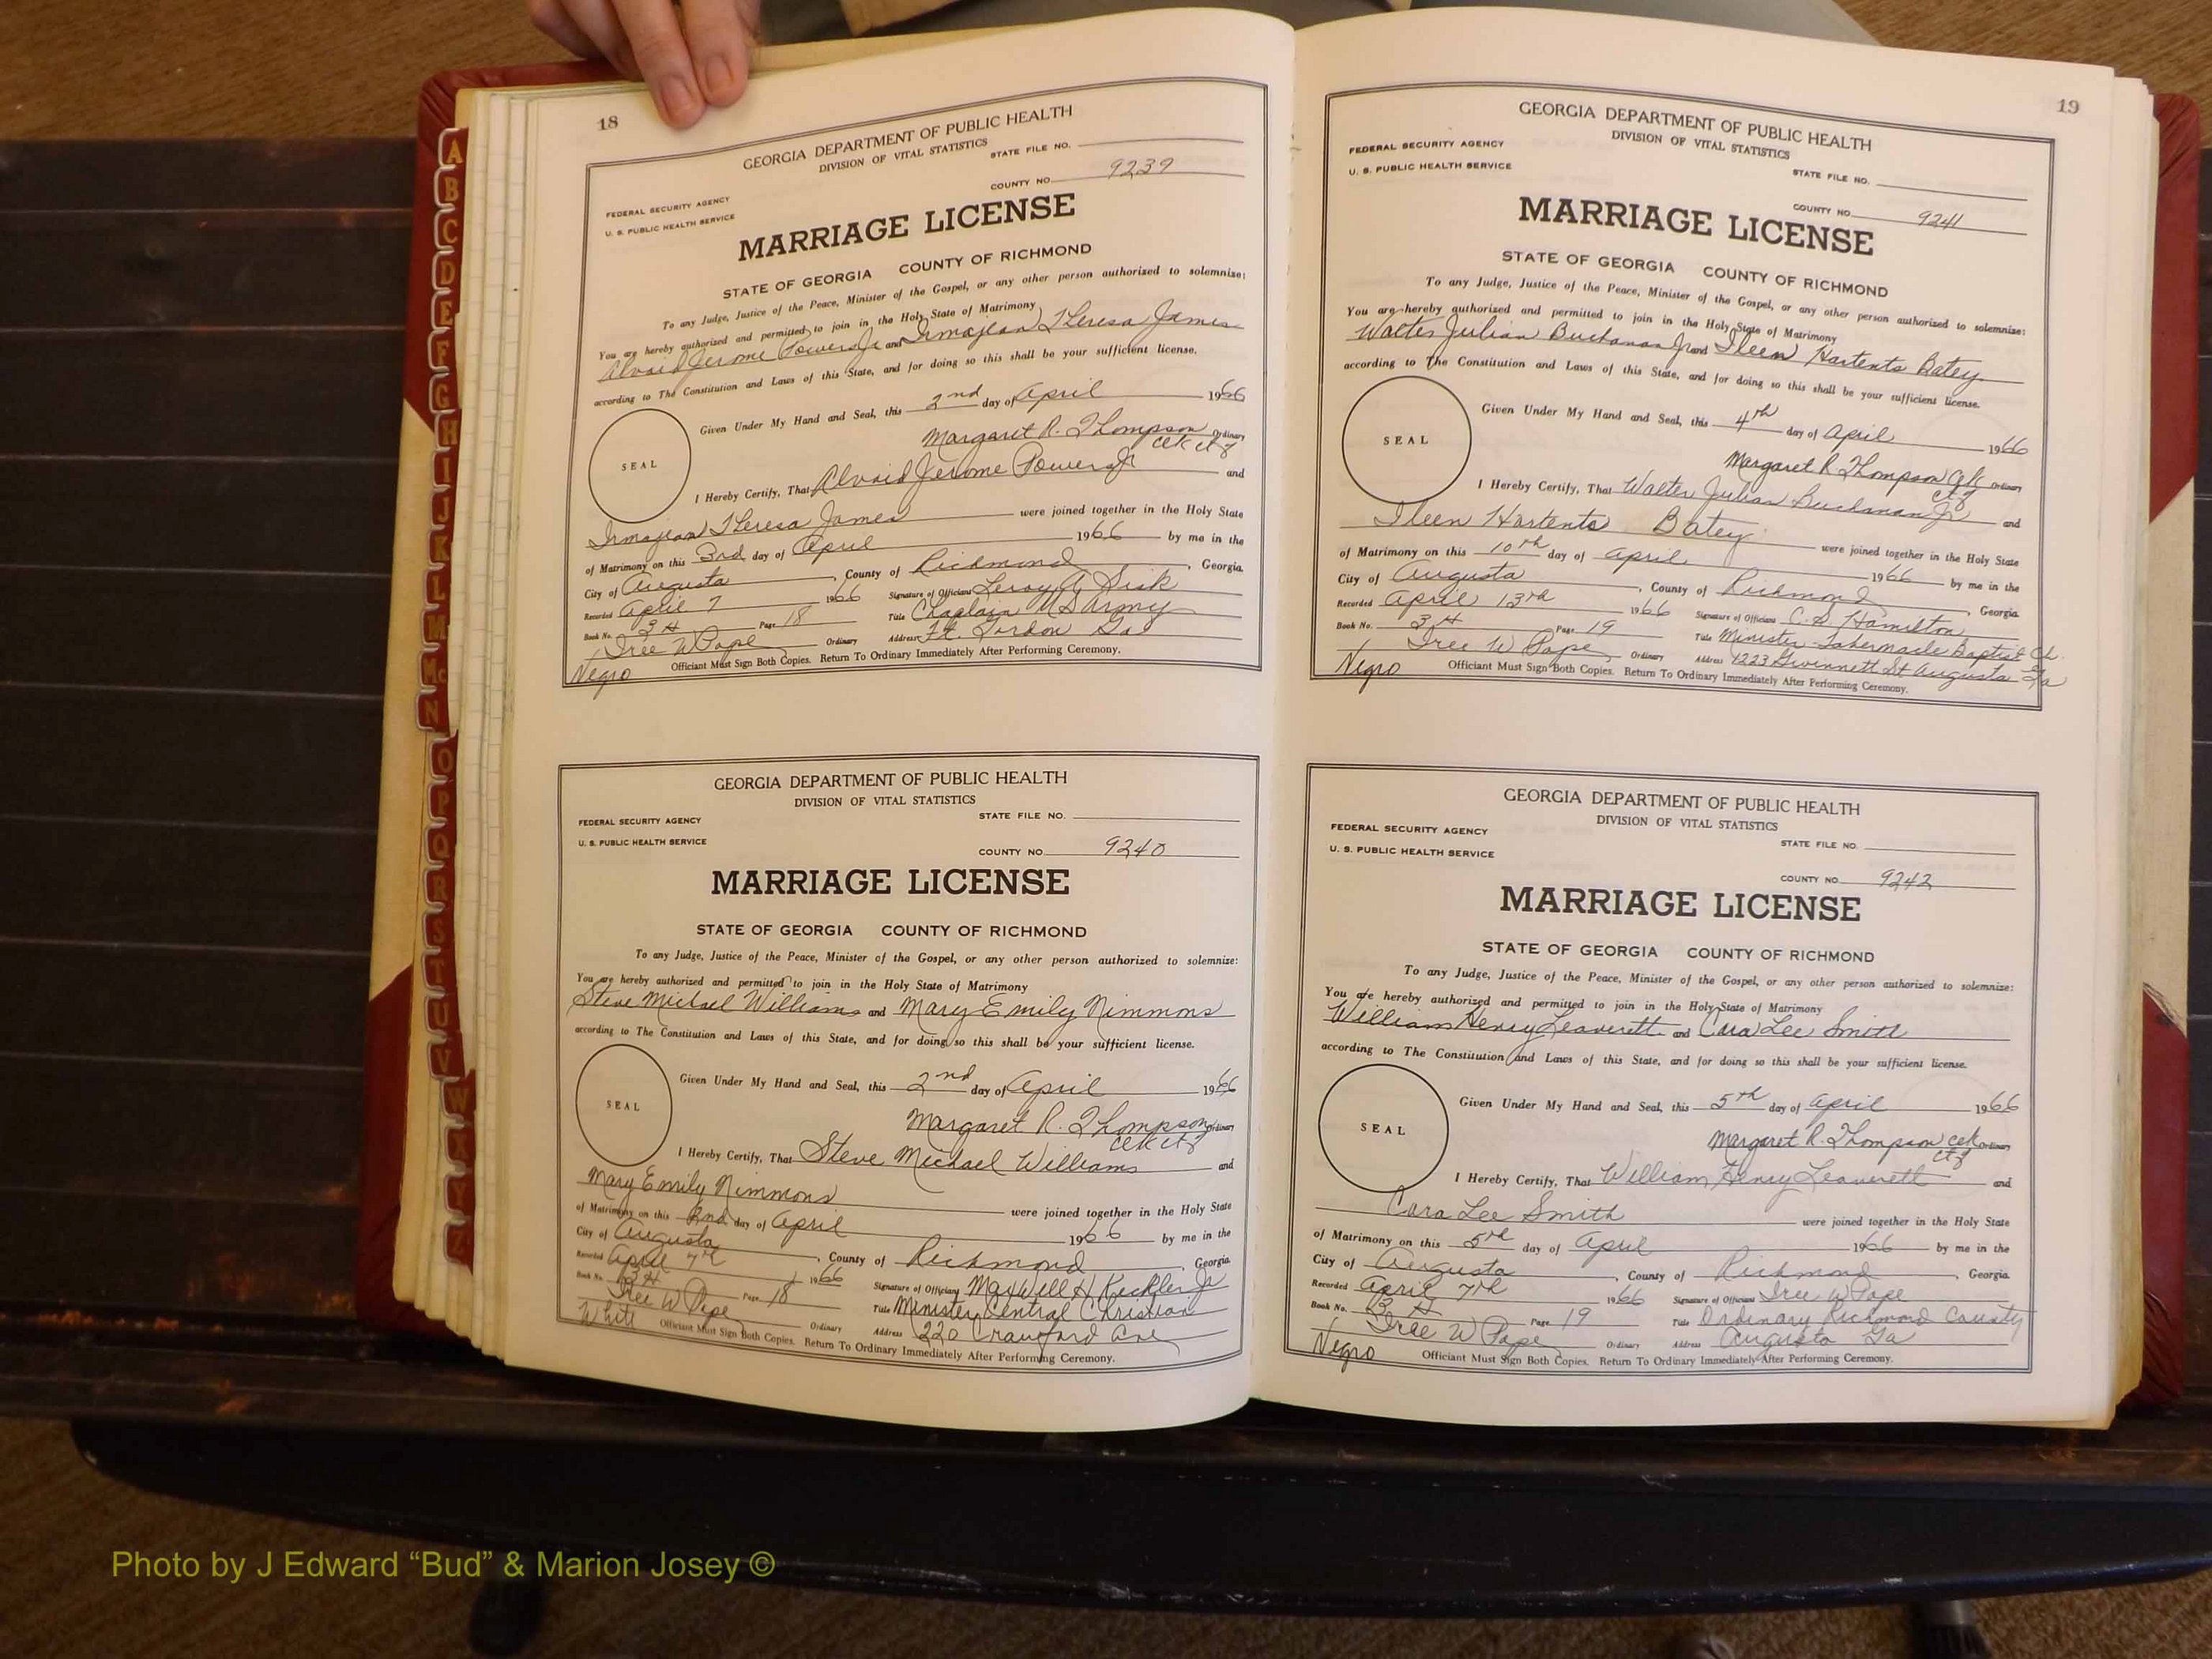 18
GEORGIA DEPARTMENT OF PUBLIC HEALTH
DIVISION OF VITAL STATISTICS
STATE FILE NO.
COUNTY NO. 9239
FEDERAL SECURITY AGENCY
U. S. PUBLIC HEALTH SERVICE
MARRIAGE LICENSE
STATE OF GEORGIA COUNTY OF RICHMOND
To any Judge, Justice of the Peace, Minister of the Gospel, or any other person authorized to solemnize:
You are hereby authorized and permitted to join in the Holy State of Matrimony
Alvoid Jerome Powers Jr and Irmajean Theresa James
according to The Constitution and Laws of this State, and for doing so this shall be your sufficient license.
SEAL
Given Under My Hand and Seal, this 2nd day of April 1966
Margaret R. Thompson Ordinary
I Hereby Certify, That Alvoid Jerome Powers Jr and
Irmajean Theresa James were joined together in the Holy State
of Matrimony on this 3rd day of April 1966 by me in the
City of Augusta, County of Richmond, Georgia.
Recorded April 7 1966 Signature of Officiant Leroy A Sisk
Book No. 3 H Page 18 Title Chaplain US Army
Iree W Pope Ordinary Address Ft. Gordon Ga
Negro Officiant Must Sign Both Copies. Return To Ordinary Immediately After Performing Ceremony.
GEORGIA DEPARTMENT OF PUBLIC HEALTH
DIVISION OF VITAL STATISTICS
STATE FILE NO.
FEDERAL SECURITY AGENCY
U. S. PUBLIC HEALTH SERVICE
COUNTY NO. 9240
MARRIAGE LICENSE
STATE OF GEORGIA COUNTY OF RICHMOND
To any Judge, Justice of the Peace, Minister of the Gospel, or any other person authorized to solemnize:
You are hereby authorized and permitted to join in the Holy State of Matrimony
Steve Michael Williams and Mary Emily Nimmons
according to The Constitution and Laws of this State, and for doing so this shall be your sufficient license.
SEAL
Given Under My Hand and Seal, this 2nd day of April 1966
Margaret R. Thompson Ordinary
I Hereby Certify, That Steve Michael Williams and
Mary Emily Nimmons were joined together in the Holy State
of Matrimony on this 2nd day of April 1966 by me in the
City of Augusta, County of Richmond, Georgia.
Recorded April 7th 1966 Signature of Officiant Maxwell H Keckler Jr
Book No. 3 H Page 18 Title Minister Central Christian
Iree W Pope Ordinary Address 220 Crawford Ave
White Officiant Must Sign Both Copies. Return To Ordinary Immediately After Performing Ceremony.
19
GEORGIA DEPARTMENT OF PUBLIC HEALTH
DIVISION OF VITAL STATISTICS
FEDERAL SECURITY AGENCY
U. S. PUBLIC HEALTH SERVICE
STATE FILE NO.
COUNTY NO. 9241
MARRIAGE LICENSE
STATE OF GEORGIA COUNTY OF RICHMOND
To any Judge, Justice of the Peace, Minister of the Gospel, or any other person authorized to solemnize:
You are hereby authorized and permitted to join in the Holy State of Matrimony
Walter Julian Buchanan Jr and Ileen Hartents Batey
according to The Constitution and Laws of this State, and for doing so this shall be your sufficient license.
SEAL
Given Under My Hand and Seal, this 4th day of April 1966
Margaret R. Thompson Ordinary
I Hereby Certify, That Walter Julian Buchanan Jr and
Ileen Hartents Batey were joined together in the Holy State
of Matrimony on this 10th day of April 1966 by me in the
City of Augusta, County of Richmond, Georgia.
Recorded April 13th 1966 Signature of Officiant C. S. Hamilton
Book No. 3 H Page 19 Title Minister - Tabernacle Baptist Ch.
Iree W Pope Ordinary Address 1223 Gwinnett St Augusta Ga
Negro Officiant Must Sign Both Copies. Return To Ordinary Immediately After Performing Ceremony.
GEORGIA DEPARTMENT OF PUBLIC HEALTH
DIVISION OF VITAL STATISTICS
FEDERAL SECURITY AGENCY
U. S. PUBLIC HEALTH SERVICE
STATE FILE NO.
COUNTY NO. 9242
MARRIAGE LICENSE
STATE OF GEORGIA COUNTY OF RICHMOND
To any Judge, Justice of the Peace, Minister of the Gospel, or any other person authorized to solemnize:
You are hereby authorized and permitted to join in the Holy State of Matrimony
William Henry Leaverett and Cara Lee Smith
according to The Constitution and Laws of this State, and for doing so this shall be your sufficient license.
SEAL
Given Under My Hand and Seal, this 5th day of April 1966
Margaret R. Thompson Ordinary
I Hereby Certify, That William Henry Leaverett and
Cara Lee Smith were joined together in the Holy State
of Matrimony on this 5th day of April 1966 by me in the
City of Augusta, County of Richmond, Georgia.
Recorded April 7th 1966 Signature of Officiant Iree W Pope
Book No. 3 H Page 19 Title Ordinary Richmond County
Iree W Pope Ordinary Address Augusta Ga
Negro Officiant Must Sign Both Copies. Return To Ordinary Immediately After Performing Ceremony.
A
B
C
D
E
F
G
H
I
J
K
L
M
Mc
N
O
P
Q
R
S
T
U
V
W
X
Y
Z
Photo by J Edward “Bud” & Marion Josey ©